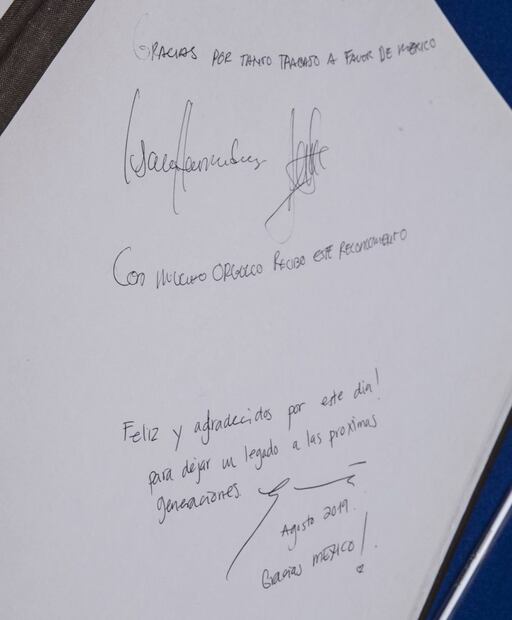 GRACIAS POR TANTO TRABAJO A FAVOR DE MEXICO
Isaac Hernández
CON MUCHO ORGULLO RECIBO ESTE RECONOCIMIENTO
Feliz y agradecidos por este dia!
para dejar un legado a las proximas
generaciones.
Agosto 2019.
Gracias MEXICO!